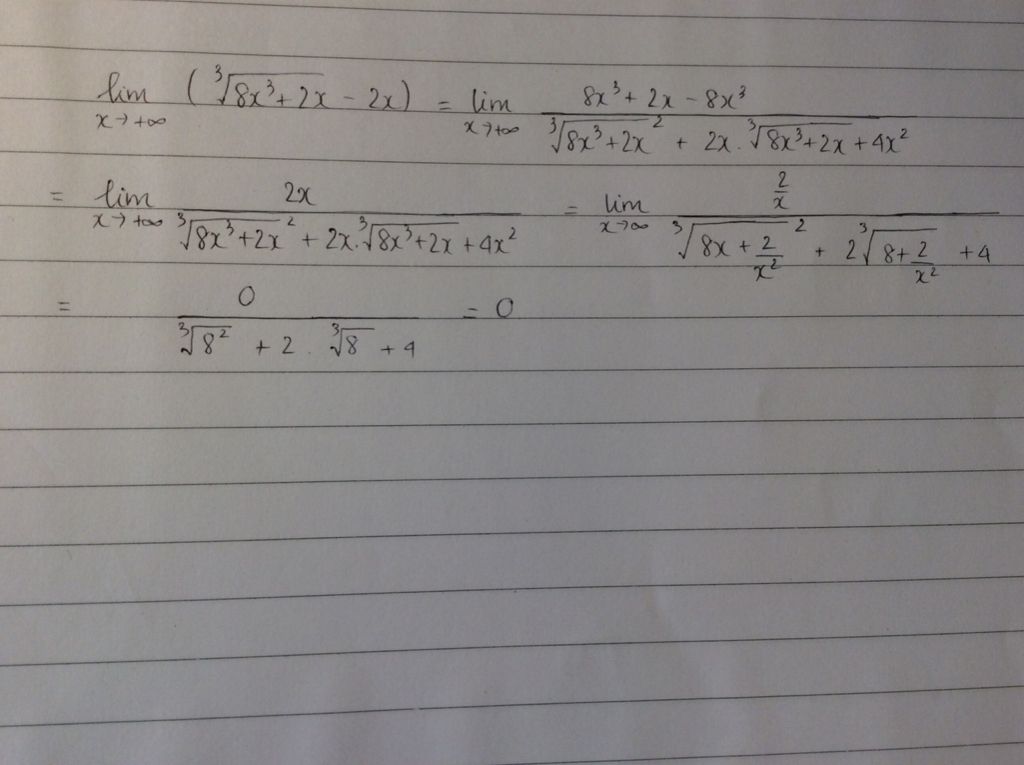 lim x→+∞ (∛(8x³+2x) - 2x) = lim x→+∞ (8x³ + 2x - 8x³)/(∛(8x³+2x)² + 2x.∛(8x³+2x) + 4x²)
= lim x→+∞ 2x/(∛(8x³+2x)² + 2x.∛(8x³+2x) + 4x²) = lim x→∞ (2/x)/(∛(8x + 2/x²)² + 2∛(8 + 2/x²) + 4)
= 0/(∛8² + 2 . ∛8 + 4) = 0